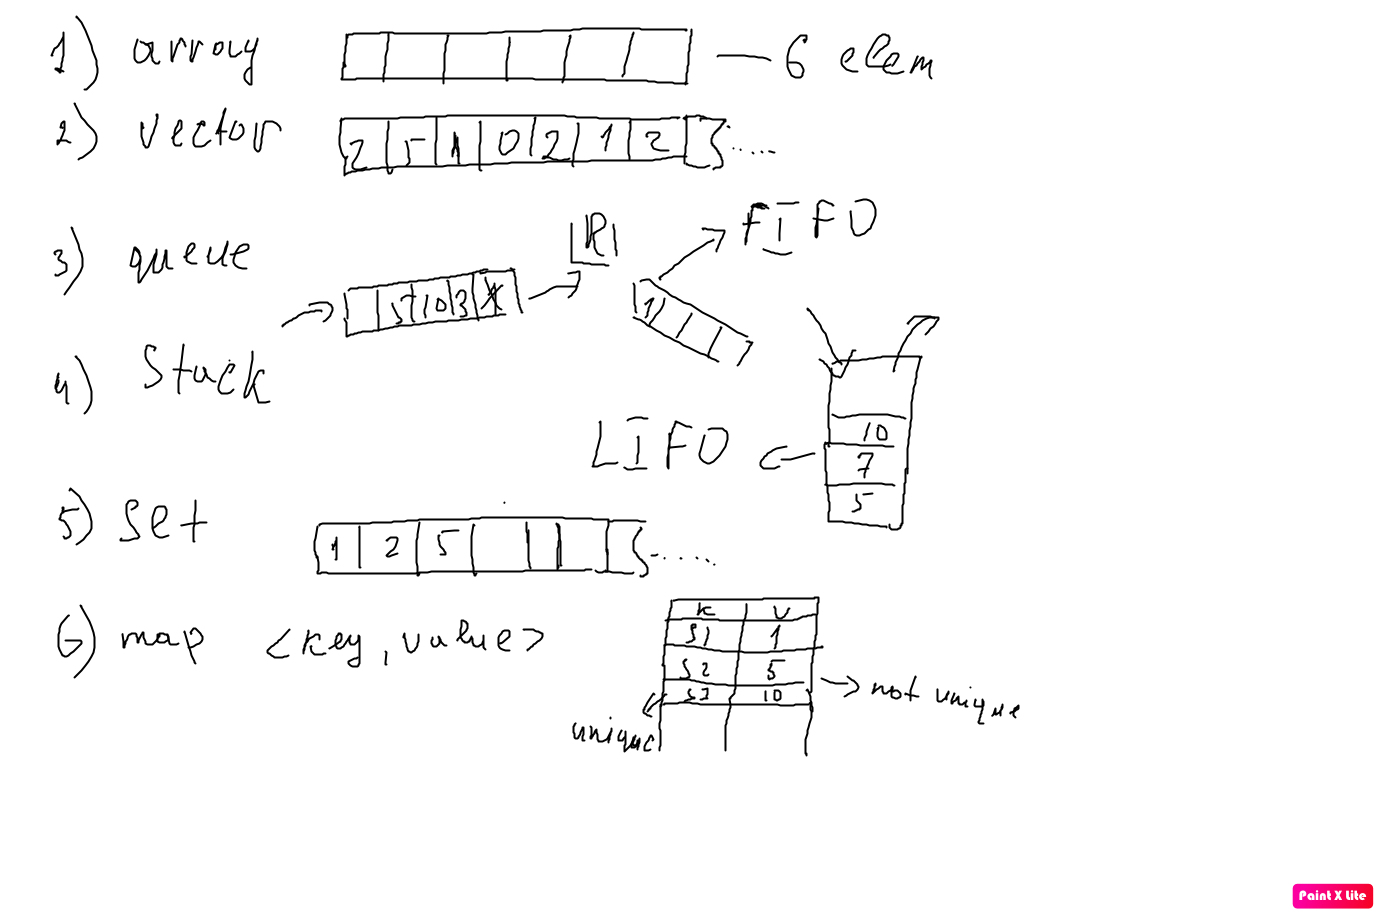 1) array 6 elem
2) vector 2 5 1 0 2 1 2 .....
3) queue |R| FIFO
5 10 3
1
4) Stack
10
LIFO 7
5
5) set 1 2 5 ......
6) map <key, value>
K V
S1 1
S2 5
S3 10
not unique
unique
Paint X Lite